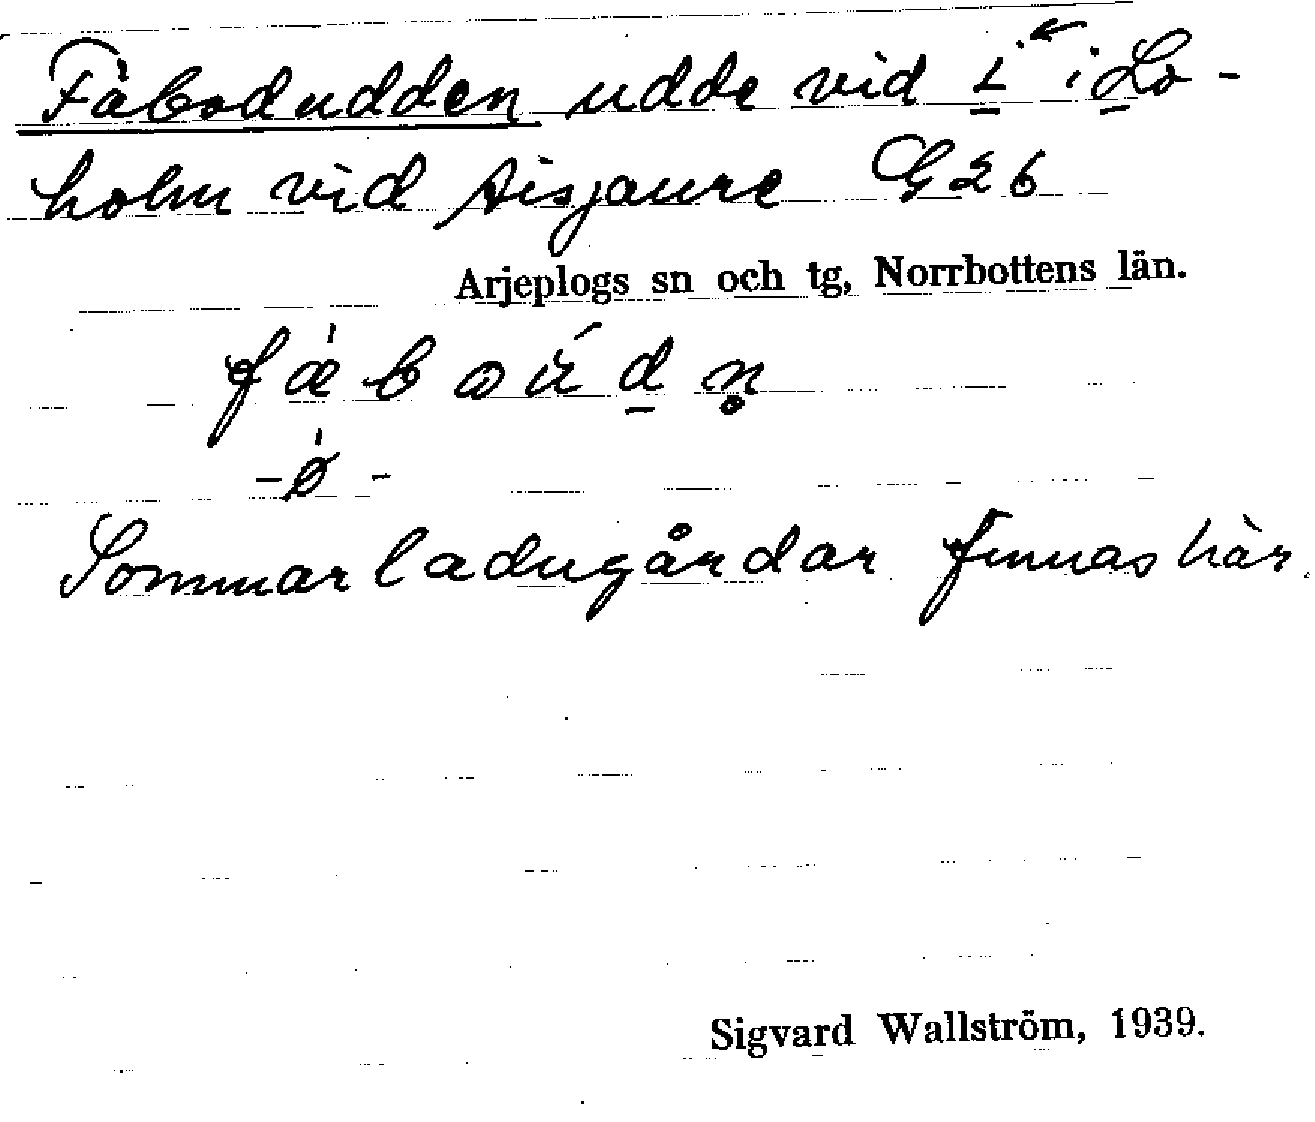 Fäbodudden udde vid L i Lo-
holm vid Aisjaure G26
Arjeplogs sn och tg, Norrbottens län.
fæboudn
-ø-
Sommarladugårdar finnas här.
Sigvard Wallström, 1939.